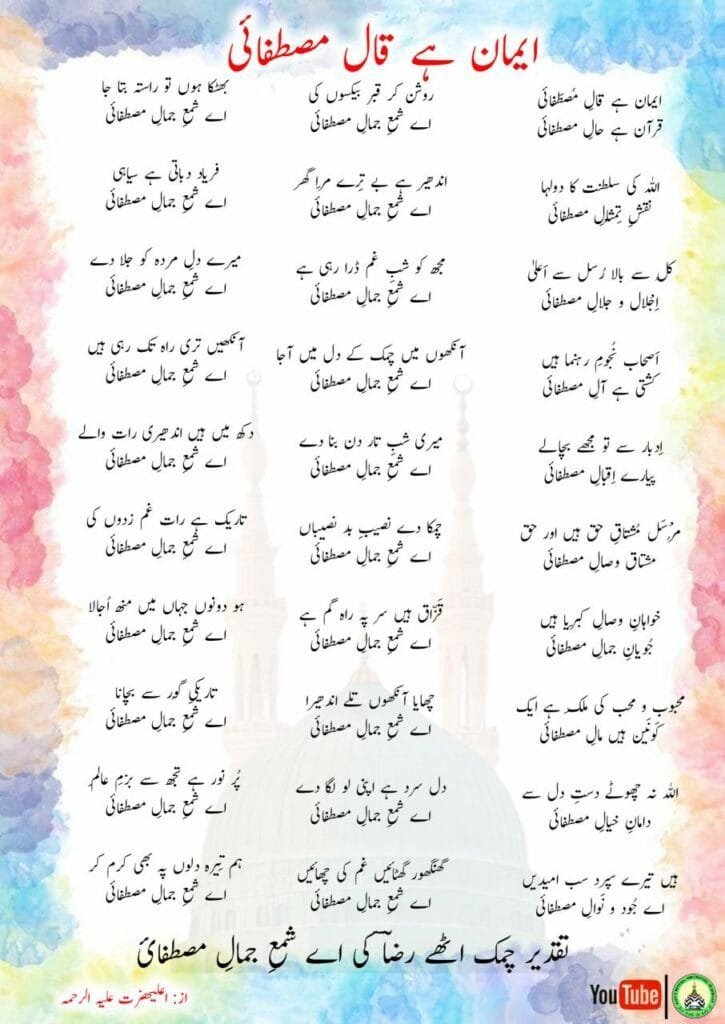 ایمان ہے قال مصطفائی
ایمان ہے قالِ مُصطَفائی
قرآن ہے حالِ مصطفائی
اللہ کی سلطنت کا دولہا
نقشِ تِمثالِ مصطفائی
کل سے بالا رُسل سے اَعلیٰ
اِجلال و جلالِ مصطفائی
اَصحاب نُجومِ رہنما ہیں
کشتی ہے آلِ مصطفائی
اِدبار سے تو مجھے بچالے
پیارے اِقبالِ مصطفائی
مرْسَل مُشتاقِ حق ہیں اور حق
مشتاق وصالِ مصطفائی
خواہانِ وصالِ کبریا ہیں
جُویانِ جمالِ مصطفائی
محبوب و محب کی ملک ہے ایک
کَونَین ہیں مالِ مصطفائی
اللہ نہ چھوٹے دستِ دل سے
دامانِ خیالِ مصطفائی
ہیں تیرے سپرد سب امیدیں
اے جُود و نَوالِ مصطفائی
روشن کر قبر بیکسوں کی
اے شمعِ جمالِ مصطفائی
اندھیر ہے بے تِرے مرا گھر
اے شمعِ جمالِ مصطفائی
مجھ کو شبِ غم ڈرا رہی ہے
اے شمعِ جمالِ مصطفائی
آنکھوں میں چمک کے دل میں آجا
اے شمعِ جمالِ مصطفائی
میری شبِ تار دن بنا دے
اے شمعِ جمالِ مصطفائی
چمکا دے نصیبِ بد نصیباں
اے شمعِ جمالِ مصطفائی
قَزّاق ہیں سر پہ راہ گم ہے
اے شمعِ جمالِ مصطفائی
چھایا آنکھوں تلے اندھیرا
اے شمعِ جمالِ مصطفائی
دل سرد ہے اپنی لو لگا دے
اے شمعِ جمالِ مصطفائی
گھنگھور گھٹائیں غم کی چھائیں
اے شمعِ جمالِ مصطفائی
بھٹکا ہوں تو راستہ بتا جا
اے شمعِ جمالِ مصطفائی
فریاد دباتی ہے سیاہی
اے شمعِ جمالِ مصطفائی
میرے دلِ مردہ کو جلا دے
اے شمعِ جمالِ مصطفائی
آنکھیں تری راہ تک رہی ہیں
اے شمعِ جمالِ مصطفائی
دکھ میں ہیں اندھیری رات والے
اے شمعِ جمالِ مصطفائی
تاریک ہے رات غم زدوں کی
اے شمعِ جمالِ مصطفائی
ہو دونوں جہاں میں منھ اُجالا
اے شمعِ جمالِ مصطفائی
تاریکیِ گور سے بچانا
اے شمعِ جمالِ مصطفائی
پُر نور ہے تجھ سے بزمِ عالم
اے شمعِ جمالِ مصطفائی
ہم تیرہ دلوں پہ بھی کرم کر
اے شمعِ جمالِ مصطفائی
تقدیر چمک اٹھے رضاؔ کی اے شمعِ جمالِ مصطفائی
از: اعلیحضرت علیہ الرحمہ
YouTube